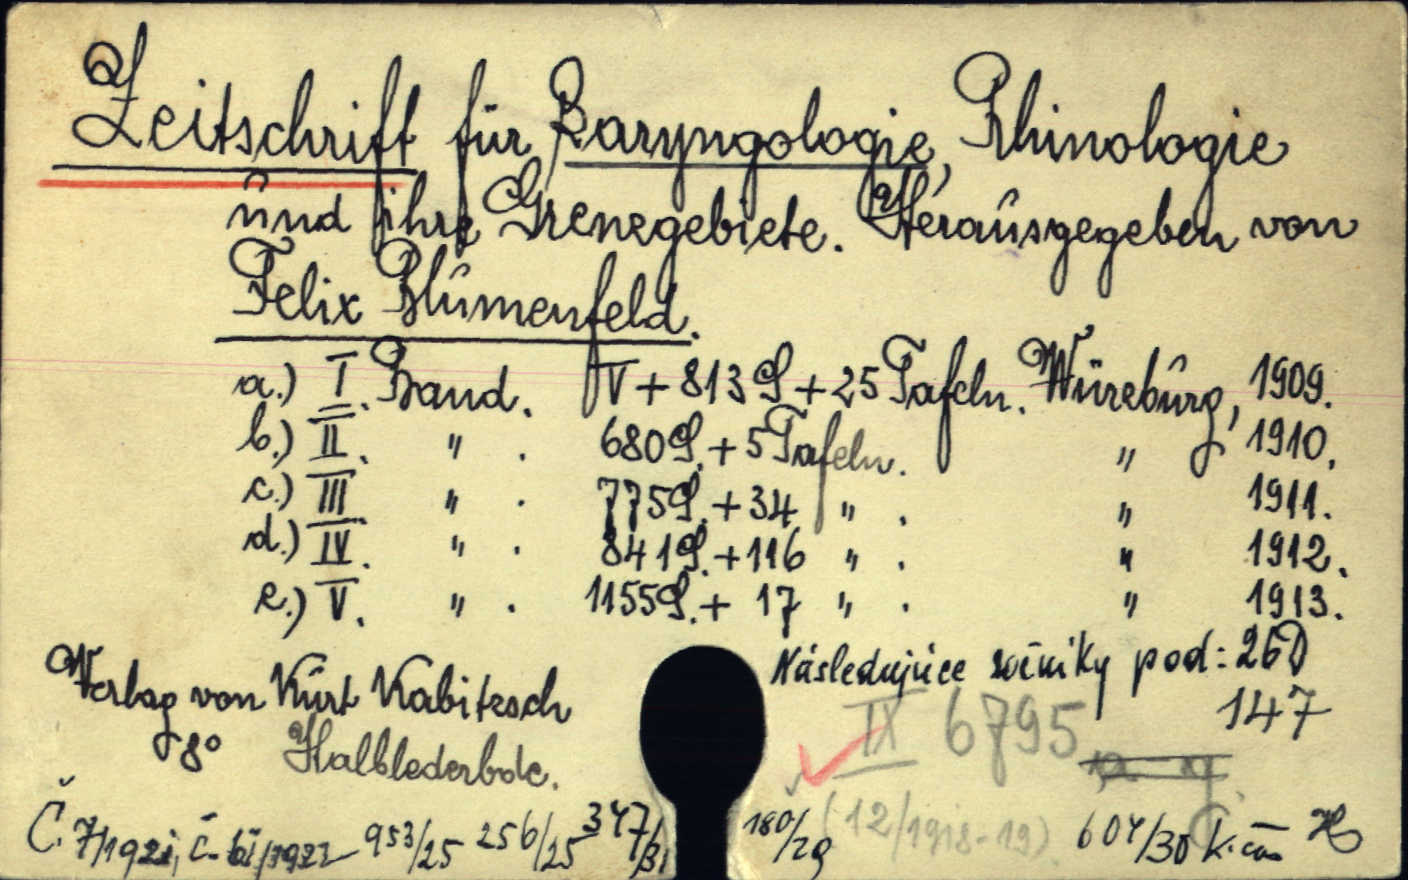 Zeitschrift für Laryngologie, Rhinologie
und ihre Grenzgebiete. Herausgegeben von
Felix Blumenfeld.
a.) I. Band. IV + 813 S + 25 Tafeln. Würzburg, 1909.
b.) II. " . 680 S. + 5 Tafeln. " 1910.
c.) III " . 775 S. + 34 " . " 1911.
d.) IV. " . 841 S. + 116 " . " 1912.
e.) V. " . 1155 S. + 17 " . " 1913.
Verlag von Kurt Kabitzsch
8° Halblederbde.
Následujúce ročníky pod: 26D
147
IX 6795
Č. 7/1921, č. 953/25 256/25 347/31 180/29 (12/1918-19) 604/30